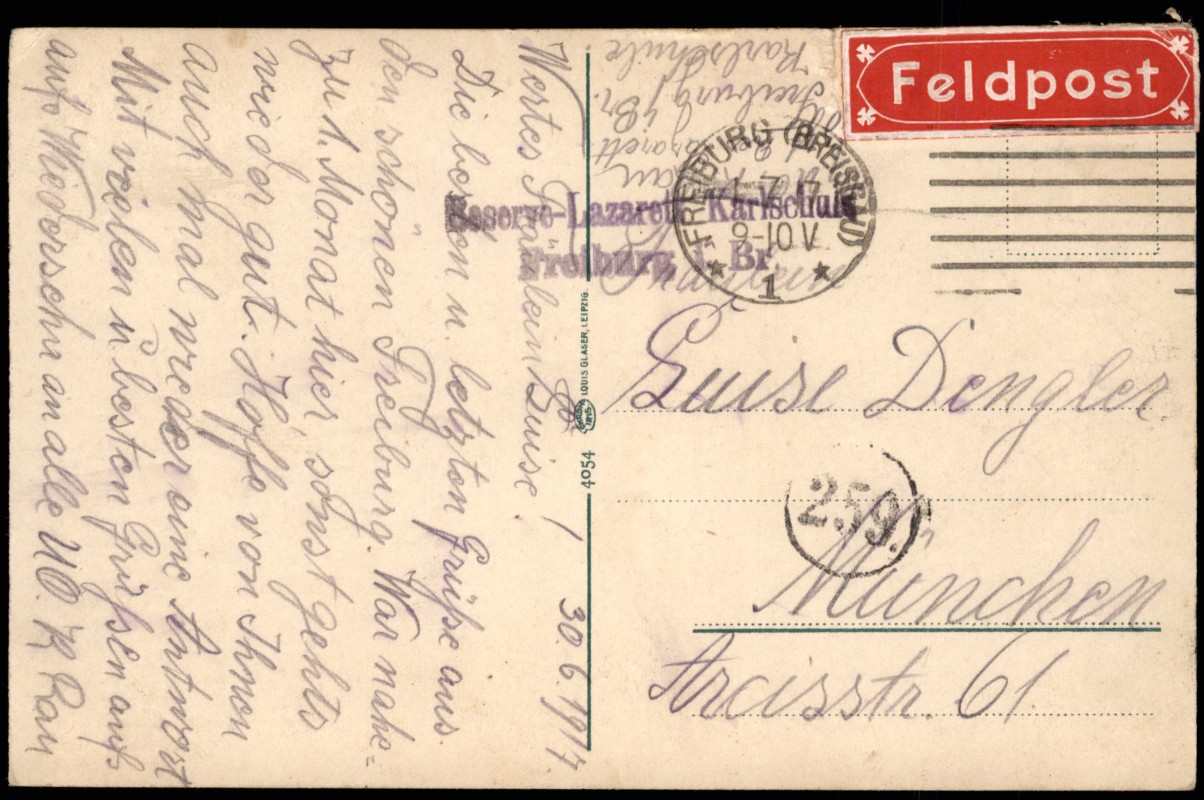 Wertes Fräulein Luise! 30.6.1917
Die besten u. letzten Grüße aus
den schönen Freiburg. War nahe=
zu 1. Monat hier sonst gehts
wieder gut. Hoffe von Ihnen
auch mal wieder eine Antwort
Mit vielen u. besten Grüßen aufs
aufs Wiedersehn an alle UO. K Rau
4054
LOUIS GLASER, LEIPZIG.
Feldpost
FREIBURG (BREISGAU)
1.7.17
9-10V
★ 1 ★
Reserve-Lazarett Karlschule
Freiburg i. Br
Rau
Lazarett
Freiburg i/Br.
Karlschule
Fräulein
Luise Dengler
259.
München
Arcisstr. 61.